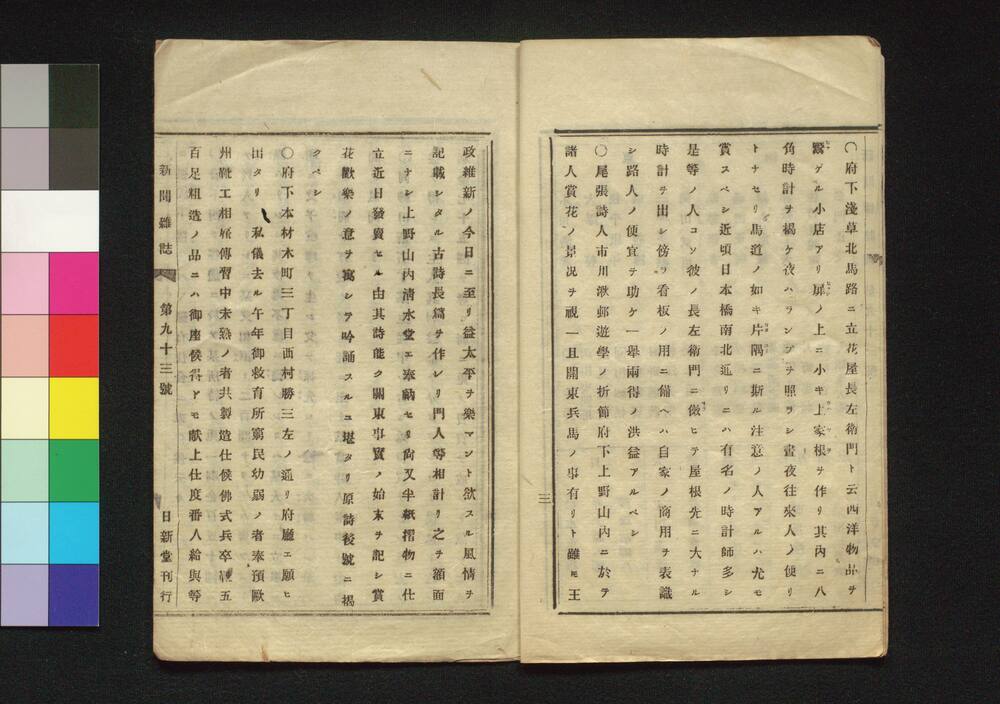 〇府下淺草北馬路ニ立花屋長左衛門ト云西洋物品ヲ
鬻ゲル小店アリ屏ノ上ニ小キ上家根ヲ作リ其內ニ八
角時計ヲ揭ケ夜ハランプヲ照ラシ晝夜往來人ノ便リ
トナセリ馬道ノ如キ片隅ニ斯ル注意ノ人アルハ尤モ
賞スベシ近頃日本橋南北通リニハ有名ノ時計師多シ
是等ノ人コソ彼ノ長左衛門ニ傚ヒテ屋根先ニ大ナル
時計ヲ出シ傍ラ看板ノ用ニ備ヘハ自家ノ商用ヲ表識
シ路人ノ便宜ヲ助ケ一擧兩得ノ洪益アルベシ
〇尾張詩人市川漱郵遊學ノ折節府下上野山內ニ於テ
諸人賞花ノ景況ヲ視一且開東兵馬ノ事有リト雖𪜈王
三
政維新ノ今日ニ至リ益太平ヲ樂マント欲スル風情ヲ
記載シタル古詩長篇ヲ作レリ門人等相計リ之ヲ額面
ニナシ上野山內淸水堂エ奉納セリ尙又半紙摺物ニ仕
立近日發賣セル由其詩能ク關東事實ノ始末ヲ記シ賞
花歡樂ノ意ヲ寓シテ吟誦スルニ堪タリ原詩後號ニ揭
クベシ
〇府下本材木町三丁目西村勝三左ノ通リ府廳エ願ヒ
出タリ 私儀去ル午年御救育所窮民幼弱ノ者奉預歐
州靴工相雇傳習中未熟ノ者共製造仕候佛式兵卒靴五
百足粗造ノ品ニハ御座候得ドモ献上仕度番人給與等
新聞雜誌 第九十三號 日新堂刊行